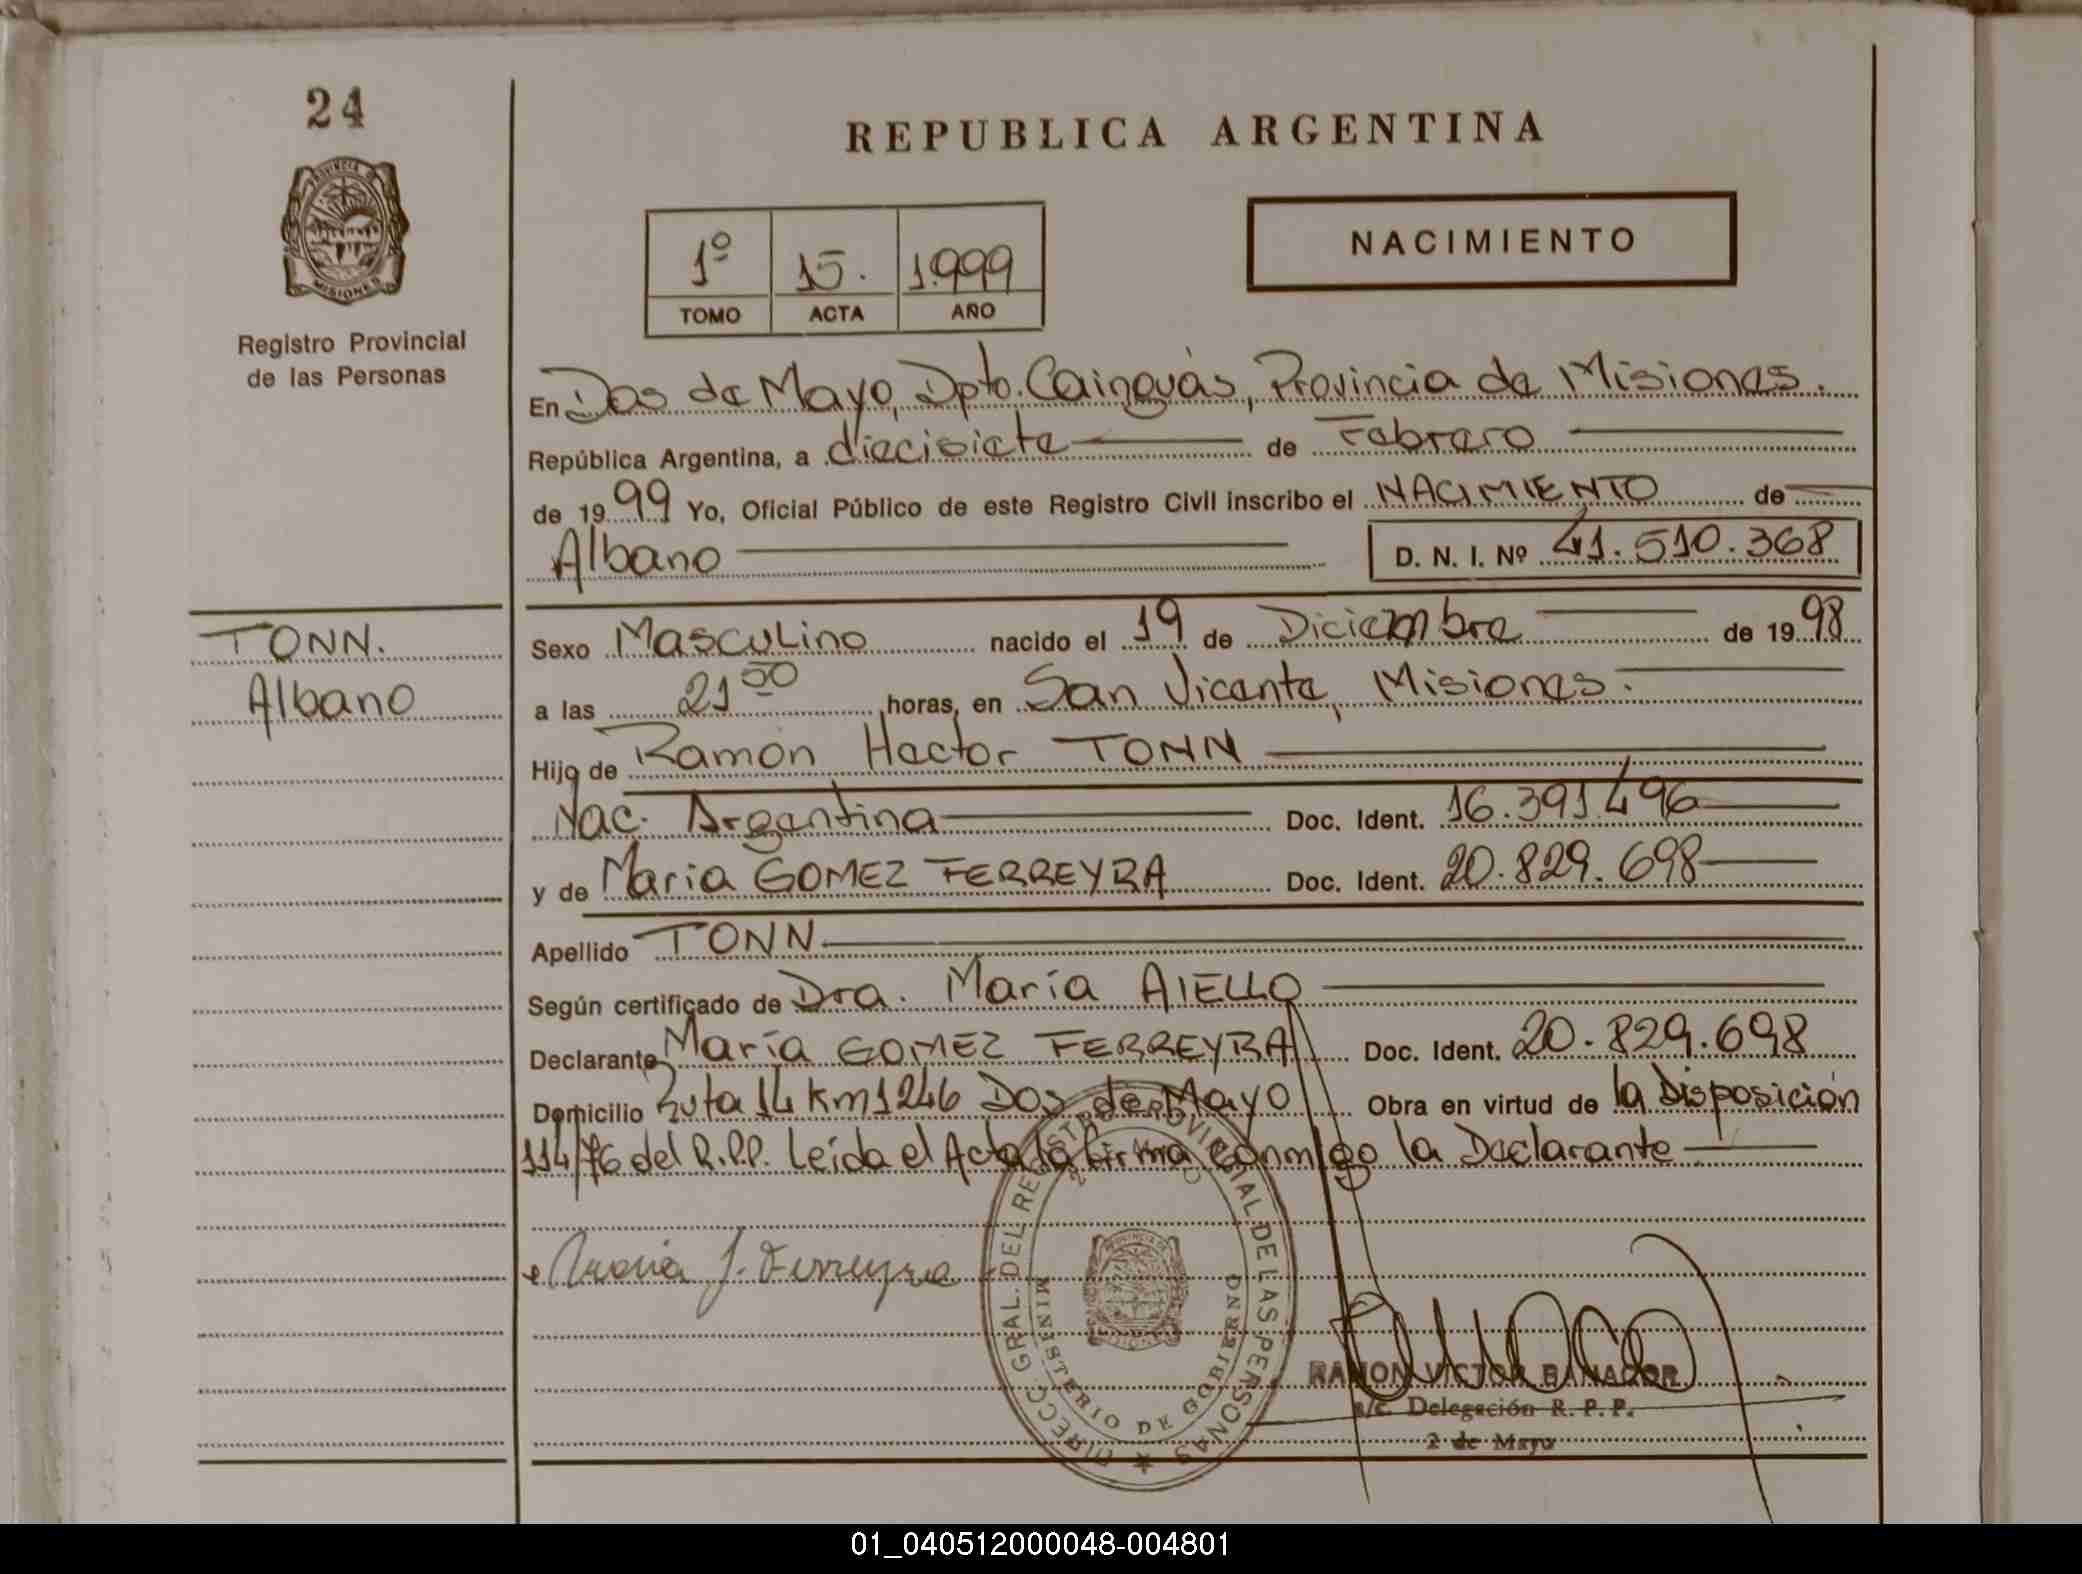 24
REPUBLICA ARGENTINA
PROVINCIA DE
MISIONES
Registro Provincial
de las Personas
1º 15. 1.999
TOMO ACTA AÑO
NACIMIENTO
En Dos de Mayo, Dpto. Cainguás, Provincia de Misiones.
República Argentina, a diecisiete de Febrero
de 1999 Yo, Oficial Público de este Registro Civil inscribo el NACIMIENTO de
Albano D. N. I. Nº 41.510.368
TONN.
Albano
Sexo Masculino nacido el 19 de Diciembre de 1998
a las 21 50 horas, en San Vicente, Misiones.
Hijo de Ramón Hector TONN
Nac. Argentina Doc. Ident. 16.391.496
y de Maria GOMEZ FERREYRA Doc. Ident. 20.829.698
Apellido TONN
Según certificado de Dra. María AIELLO
Declarante María GOMEZ FERREYRA Doc. Ident. 20.829.698
Domicilio Ruta 14 Km 1246 Dos de Mayo Obra en virtud de la Disposición
114/76 del R.P.P. Leída el Acta la firma conmigo la Declarante
María J. Ferreyra
DIRECC. GRAL. DEL REGISTRO PROVINCIAL DE LAS PERSONAS
MINISTERIO DE GOBIERNO
RAMON VICTOR BANACOR
a/c. Delegación R. P. P.
2 de Mayo
01_040512000048-004801